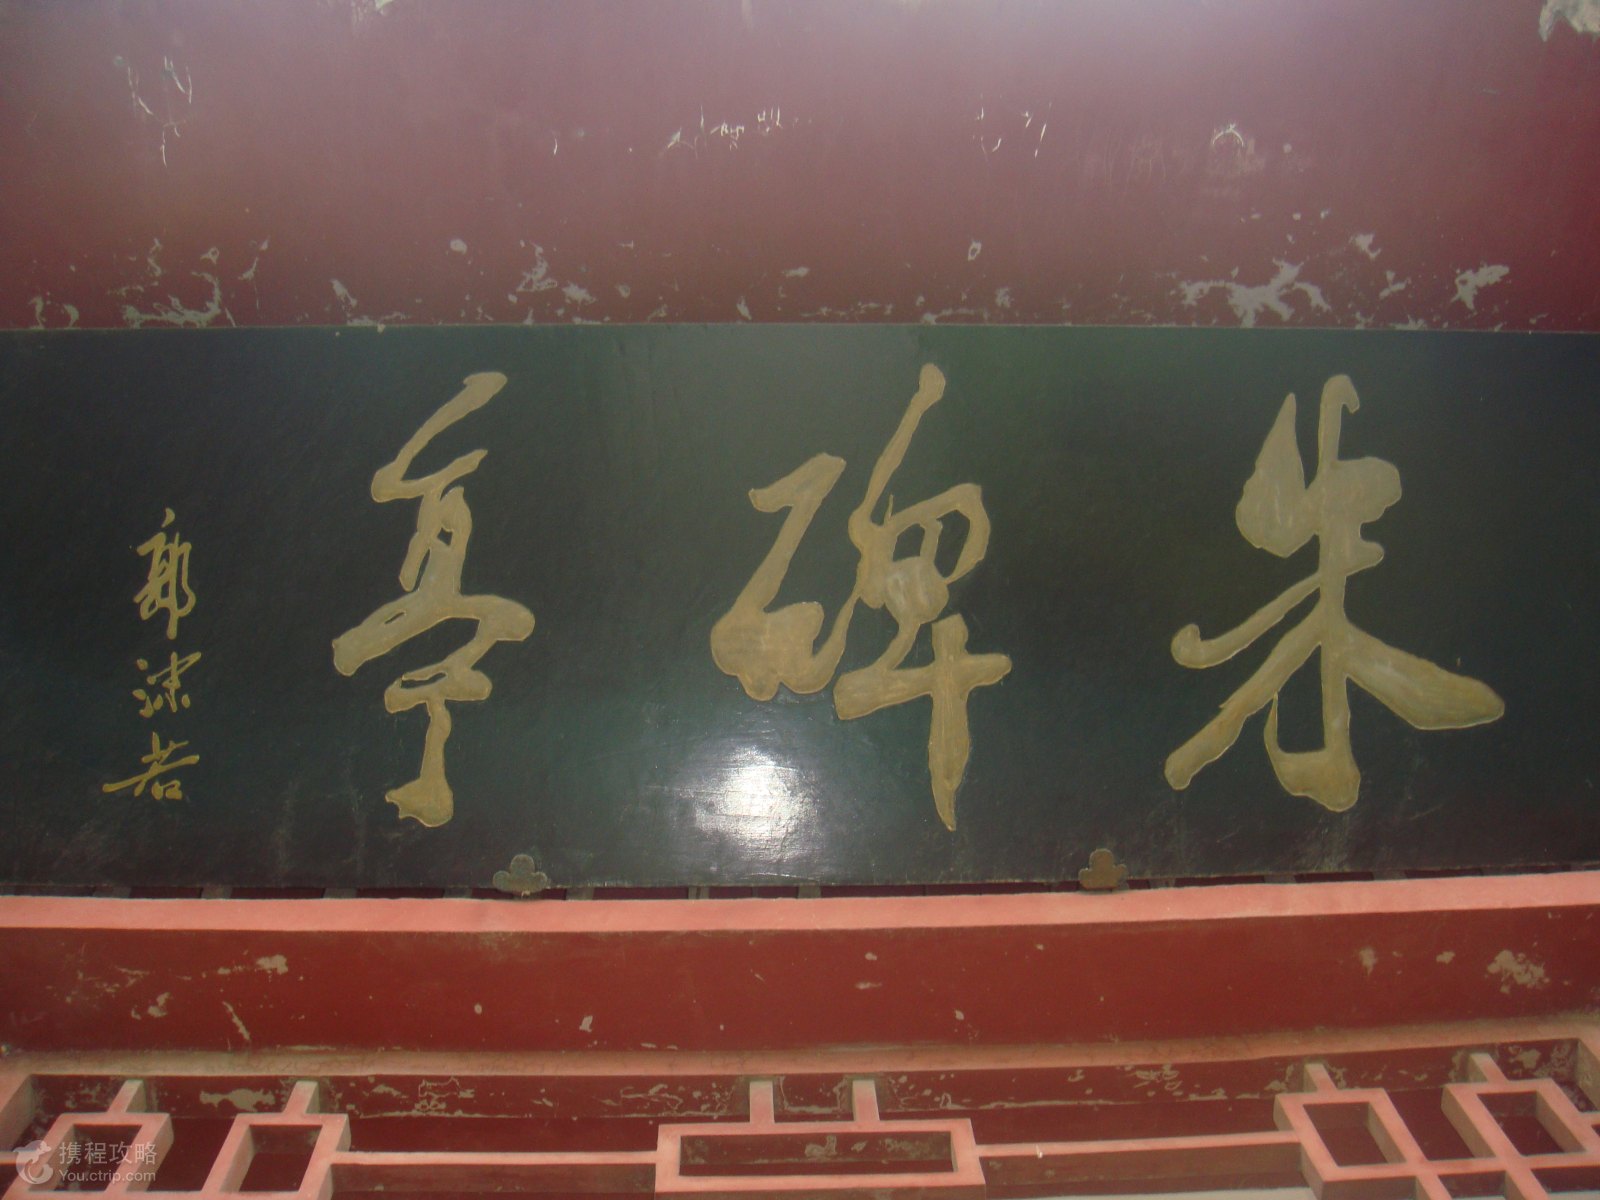 朱碑亭
郭沫若
携程攻略
You.ctrip.com